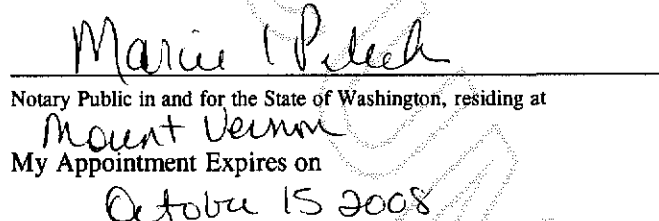 Marcie
Notary Public in and for the State of Washington, residing at
Mount Vernon
My Appointment Expires on
October 15 2008